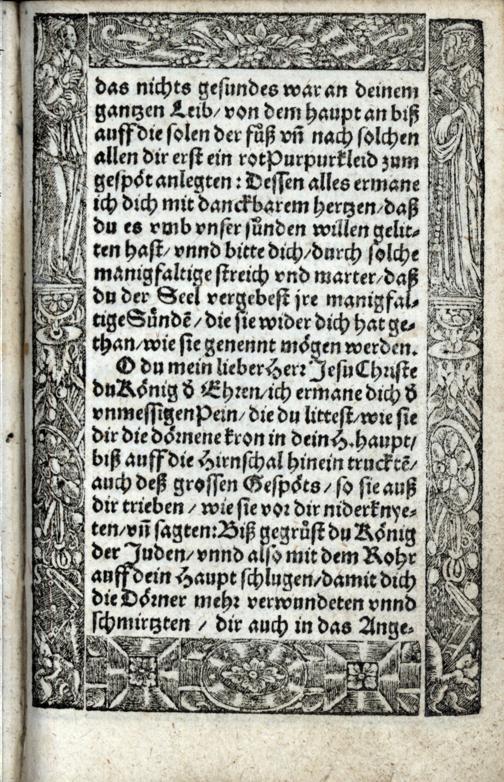 das nichts gesundes war an deinem
gantzen Leib/ von dem haupt an biß
auff die solen der fuͤß vñ nach solchen
allen dir erst ein rot Purpurkleid zum
gespoͤt anlegten: Dessen alles ermane
ich dich mit danckbarem hertzen/ daß
du es vmb vnser suͤnden willen gelit⸗
ten hast/ vnnd bitte dich/ durch solche
manigfaltige streich vnd marter/ daß
du der Seel vergebest jre manigfal⸗
tige Suͤndẽ/ die sie wider dich hat ge⸗
than/ wie sie genennt moͤgen werden.
O du mein lieber Herr Jesu Christe
du Koͤnig d̕ Ehren/ ich ermane dich d̕
vnmessigen Pein/ die du littest/ wie sie
dir die doͤrnene kron in dein H. haupt/
biß auff die Hirnschal hinein trucktẽ/
auch deß grossen Gespoͤts/ so sie auß
dir trieben/ wie sie vor dir niderknye⸗
ten/ vñ sagten: Biß gegruͤst du Koͤnig
der Juden/ vnnd also mit dem Rohr
auff dein Haupt schlugen/ damit dich
die Doͤrner mehr verwundeten vnnd
schmirtzten / dir auch in das Ange⸗